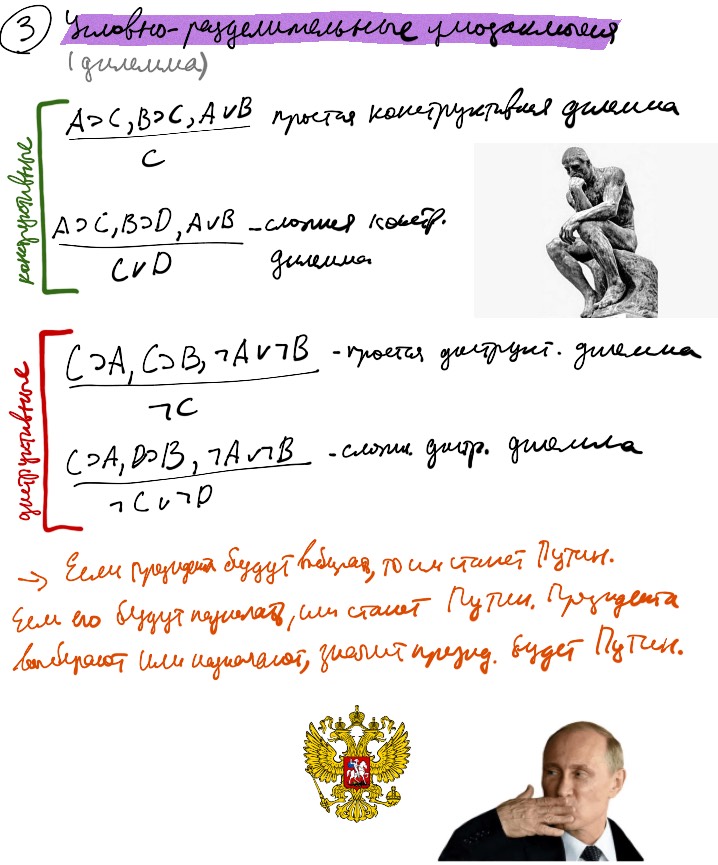 ③ Условно-разделительные умозаключения
(дилемма)
конструктивные
A⊃C, B⊃C, A∨B простая конструктивная дилемма
C
A⊃C, B⊃D, A∨B - сложная констр.
C∨D дилемма
деструктивные
C⊃A, C⊃B, ¬A∨¬B - простая деструкт. дилемма
¬C
C⊃A, D⊃B, ¬A∨¬B - сложн. дестр. дилемма
¬C∨¬D
→ Если президента будут выбирать, то им станет Путин.
Если его будут назначать, им станет Путин. Президента
выбирают или назначают, значит презид. будет Путин.